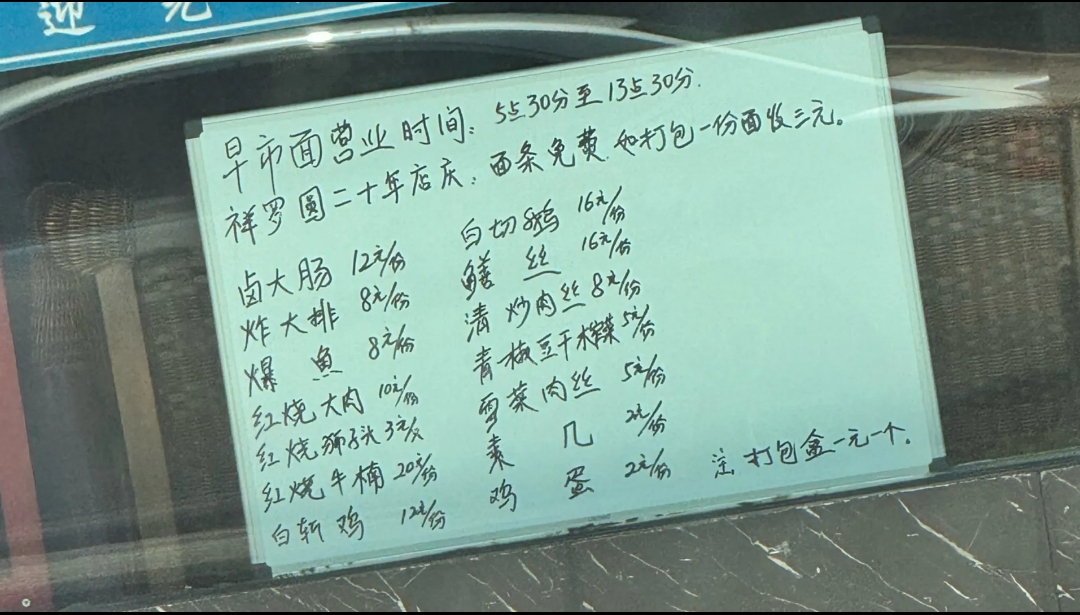 迎 光
早市面营业时间: 5点30分至13点30分.
祥罗圆二十年店庆: 面条免费. 如打包一份面收三元。
卤大肠 12元/份 白切鹅 16元/份
炸大排 8元/份 鳝丝 16元/份
爆鱼 8元/份 清炒肉丝 8元/份
红烧大肉 10元/份 青椒豆干榨菜 5元/份
红烧狮子头 3元/只 雪菜肉丝 5元/份
红烧牛楠 20元/份 素几 2元/份
白斩鸡 12元/份 鸡蛋 2元/份 注 打包盒一元一个。